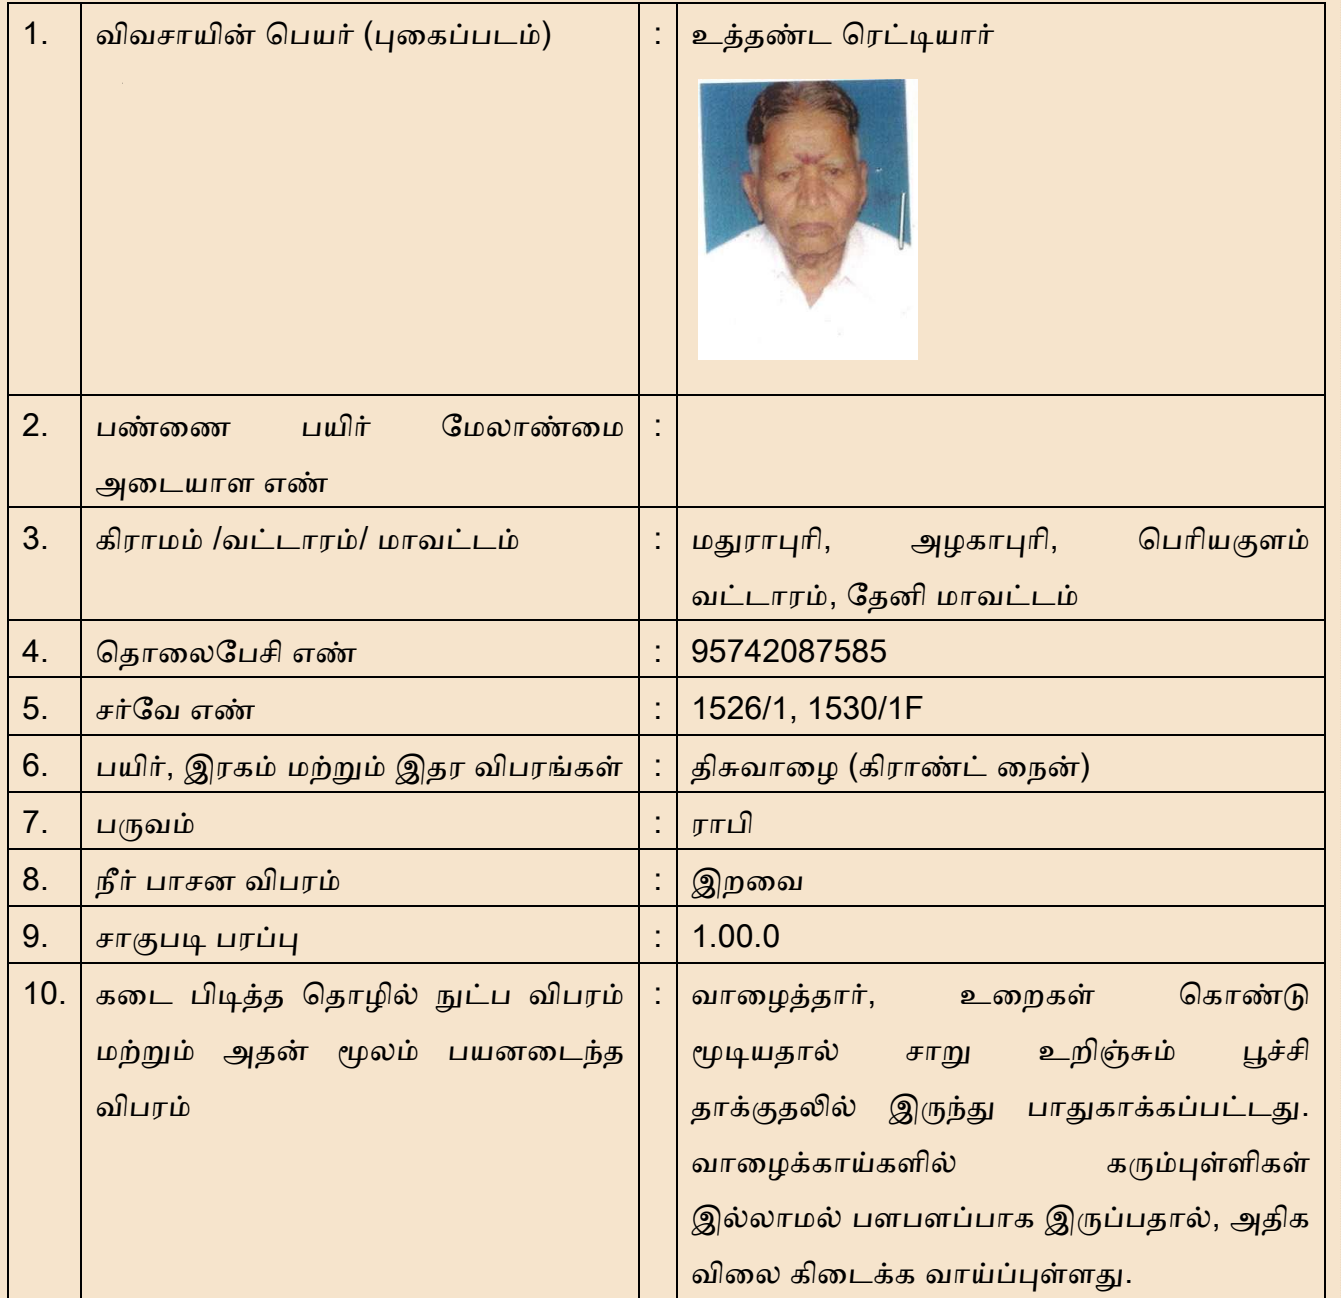 1. விவசாயின் பெயர் (புகைப்படம்) : உத்தண்ட ரெட்டியார்
2. பண்ணை பயிர் மேலாண்மை :
அடையாள எண்
3. கிராமம் /வட்டாரம்/ மாவட்டம் : மதுராபுரி, அழகாபுரி, பெரியகுளம்
வட்டாரம், தேனி மாவட்டம்
4. தொலைபேசி எண் : 95742087585
5. சர்வே எண் : 1526/1, 1530/1F
6. பயிர், இரகம் மற்றும் இதர விபரங்கள் : திசுவாழை (கிராண்ட் நைன்)
7. பருவம் : ராபி
8. நீர் பாசன விபரம் : இறவை
9. சாகுபடி பரப்பு : 1.00.0
10. கடை பிடித்த தொழில் நுட்ப விபரம் : வாழைத்தார், உறைகள் கொண்டு
மற்றும் அதன் மூலம் பயனடைந்த மூடியதால் சாறு உறிஞ்சும் பூச்சி
விபரம் தாக்குதலில் இருந்து பாதுகாக்கப்பட்டது.
வாழைக்காய்களில் கரும்புள்ளிகள்
இல்லாமல் பளபளப்பாக இருப்பதால், அதிக
விலை கிடைக்க வாய்ப்புள்ளது.